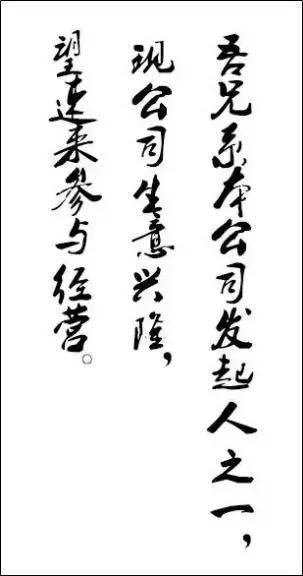 吾兄系本公司发起人之一，
现公司生意兴隆，
望速来参与经营。